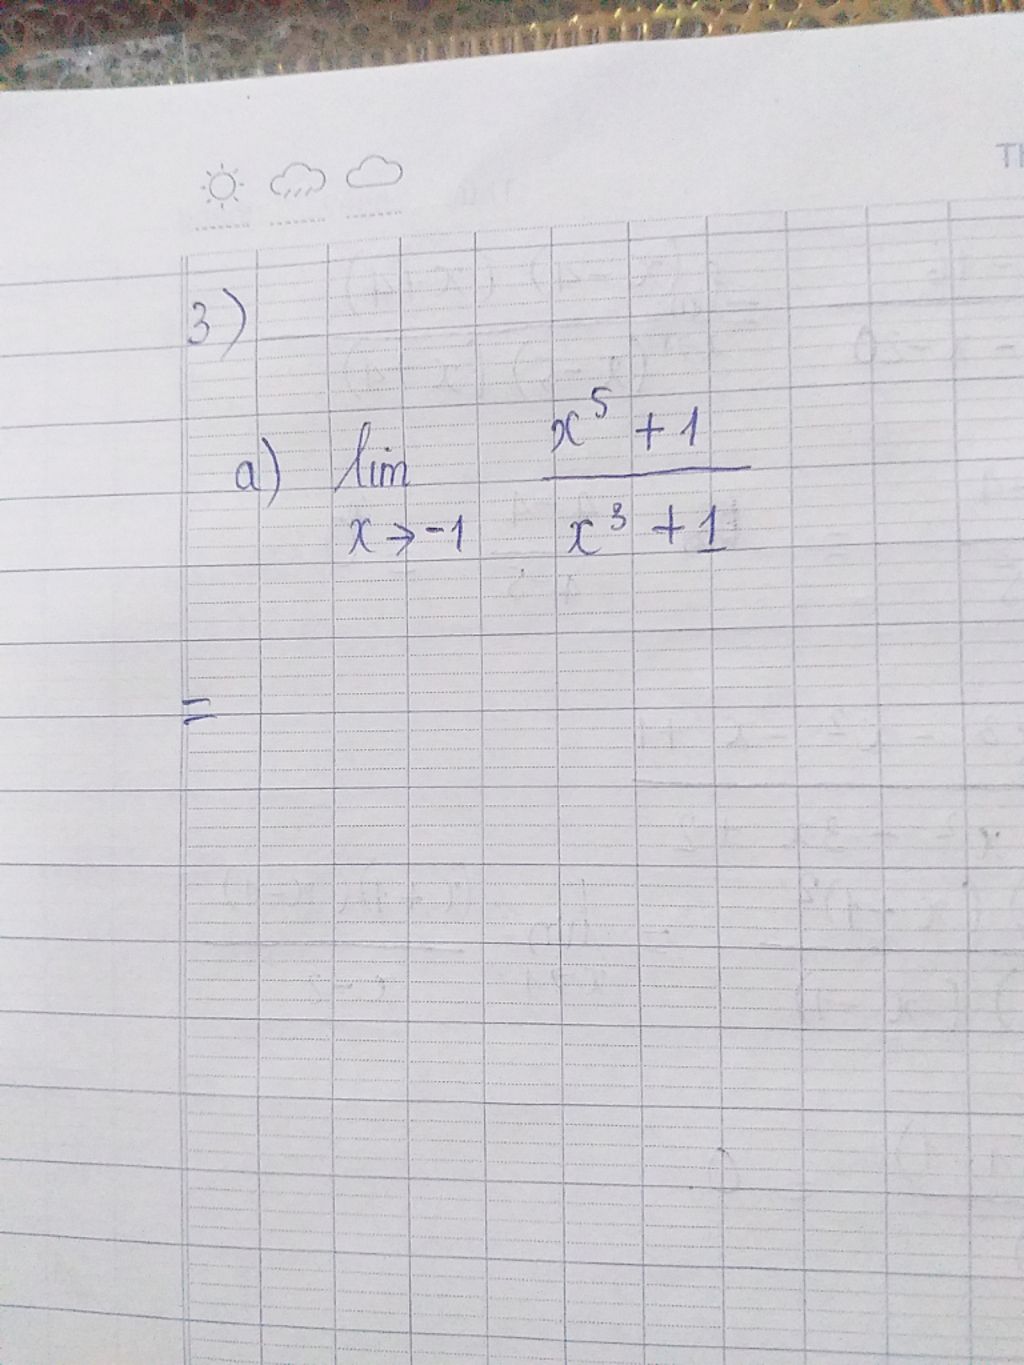 TH
3)
a) lim x → -1 x⁵ + 1 / x³ + 1
=